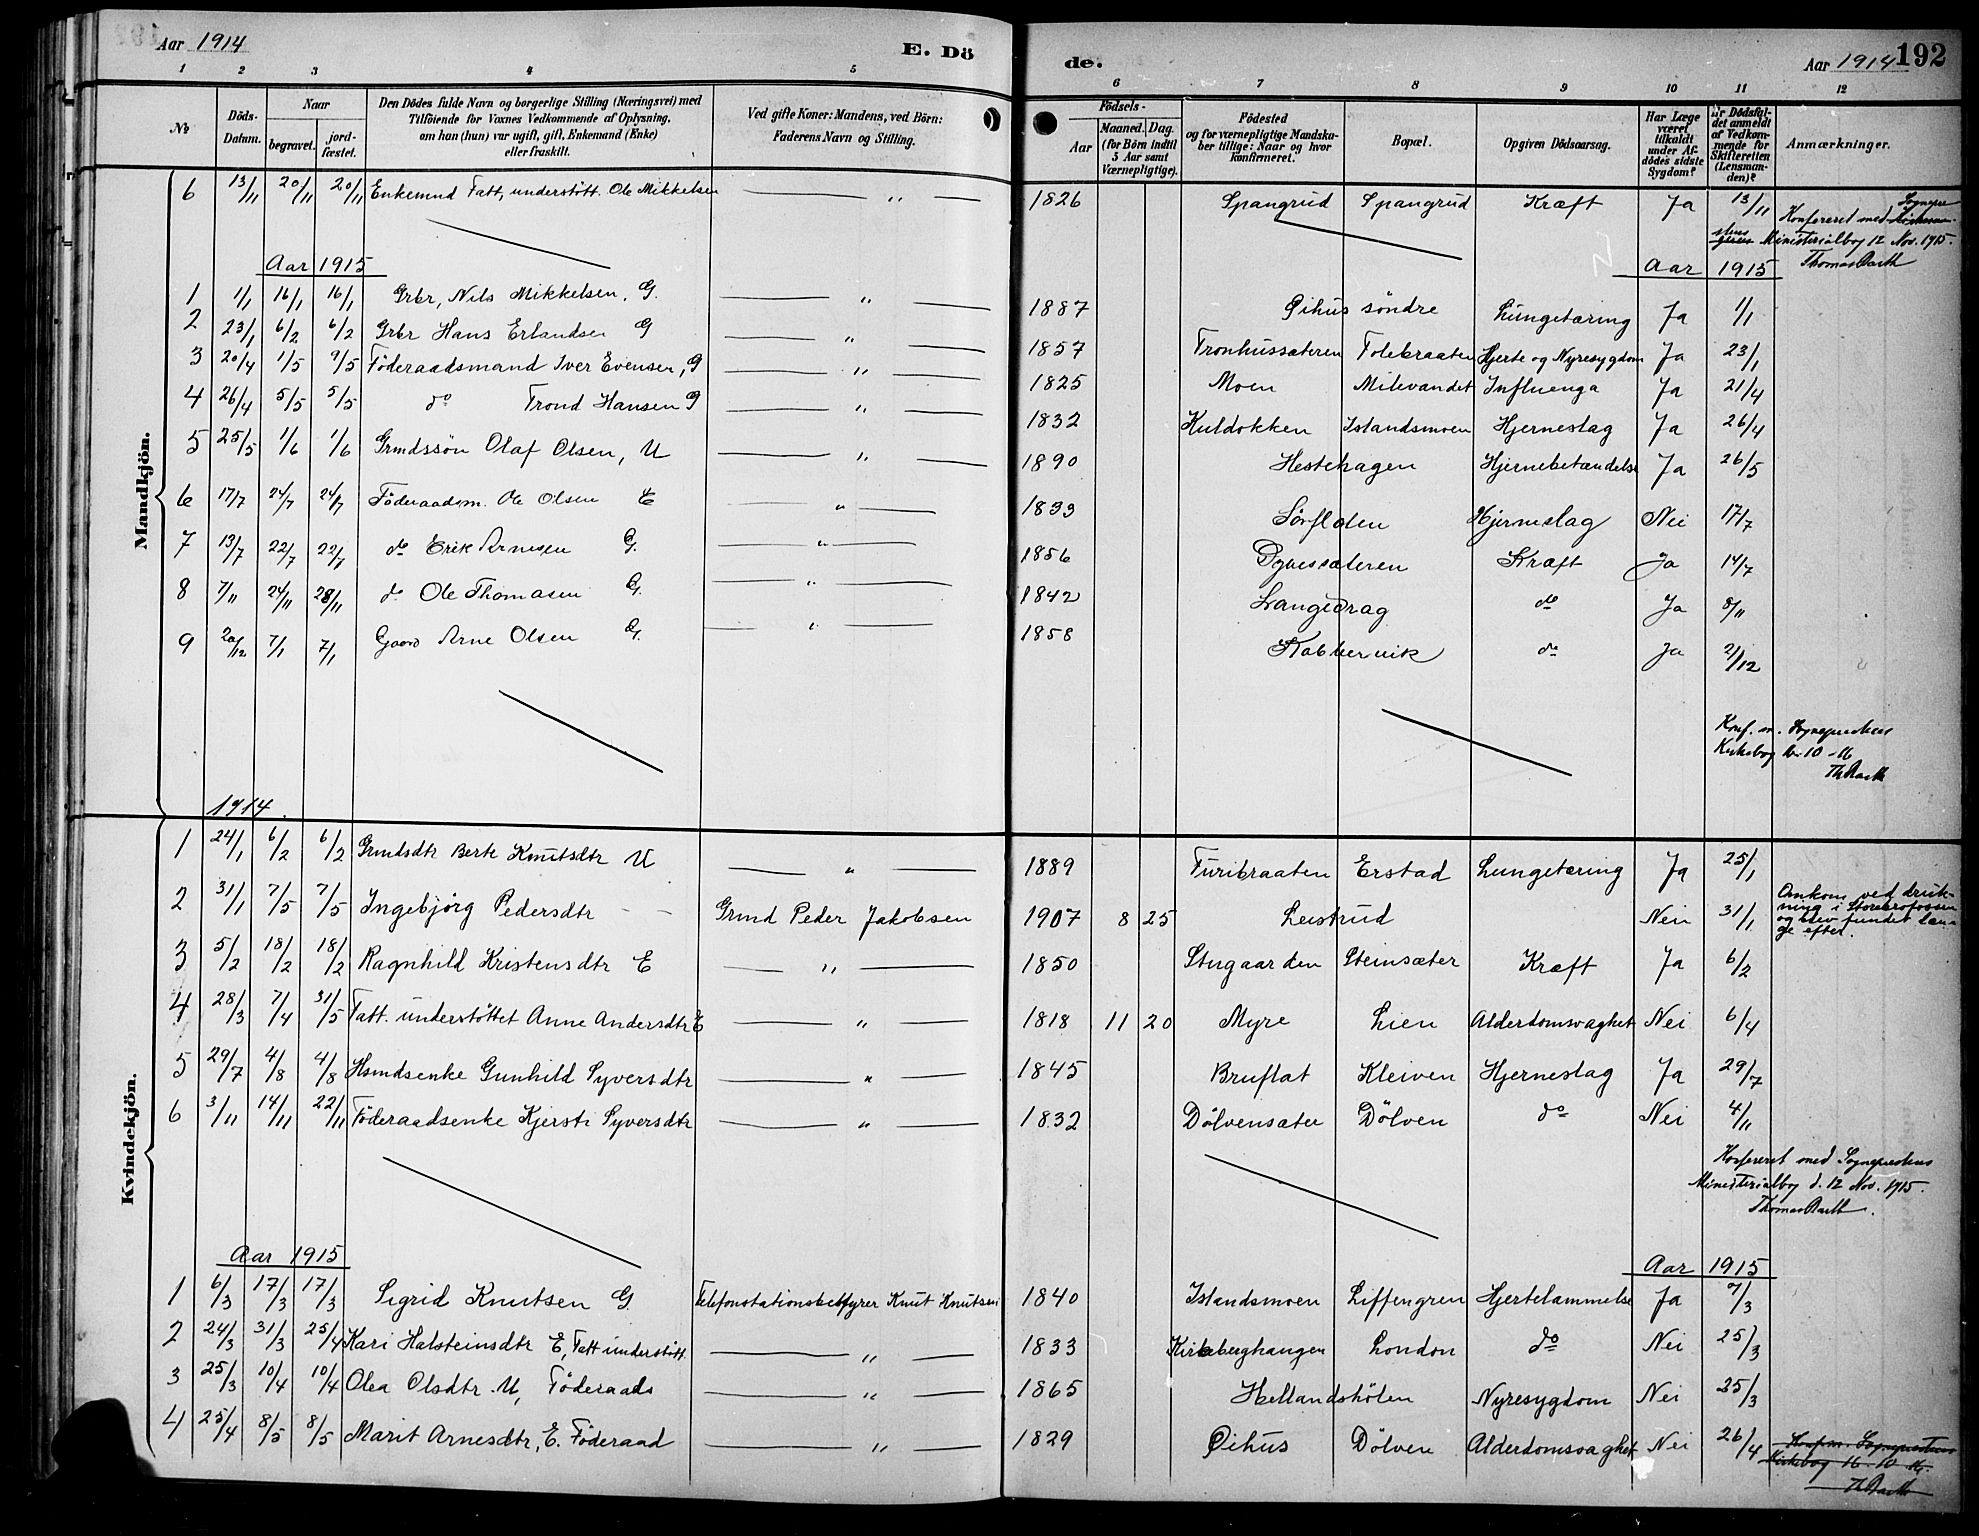 Aar 1914 E. Dö de. Aar 1914 192
1 2 3 4 5 6 7 8 9 10 11 12
No
Döds-Datum.
Naar
begravet.
jordfæstet.
Den Dödes fulde Navn og borgerlige Stilling (Næringsvei) med
Tilföiende for Voxnes Vedkommende af Oplysning,
om han (hun) var ugift, gift, Enkemand (Enke)
eller fraskilt.
Ved gifte Koner: Mandens, ved Börn:
Faderens Navn og Stilling.
Födsels-
Aar
Maaned. Dag.
(for Börn indtil
5 Aar samt
Værnepligtige).
Födested
og for værnepligtige Mandska-
ber tillige: Naar og hvor
konfirmeret.
Bopæl.
Opgiven Dödsaarsag.
Har Læge
været
tilkaldt
under Af-
dödes sidste
Sygdom?
Er Dödsfal-
det anmeldt
af Vedkom-
mende for
Skifteretten
(Lensman-
den)?
Anmærkninger.
Mandkjön.
6 13/11 20/11 20/11 Enkemnd Fatt. understött. Ole Mikkelsen — " — 1826 Spangrud Spangrud Kræft Ja 13/11
Konfereret med Sogneprestens
Ministerialbog 12 Nov. 1915.
Thomas Barth
Aar 1915 Aar 1915
1 1/1 16/1 16/1 Grbr, Nils Mikkelsen, G. — " — 1887 Oihus söndre Lungetæring Ja 1/1
2 23/1 6/2 6/2 Grbr Hans Erlandsen G — " — 1857 Tronhussæteren Folebraaten Hjerte og Nyresygdom Ja 23/1
3 20/4 1/5 9/5 Föderaadsmand Iver Evensen, G — " — 1825 Moen Milevandet Influenga Ja 21/4
4 26/4 5/5 5/5 do Trond Hansen G — " — 1832 Kuldokken Islandsmoen Hjerneslag Ja 26/4
5 25/5 1/6 1/6 Grmdssön Olaf Olsen, U — " — 1890 Hestehagen Hjernebetændelse Ja 26/5
6 17/7 24/7 24/7 Föderaadsm. Ole Olsen E — " — 1833 Sørfloten Hjerneslag Nei 17/7
7 13/7 22/7 22/7 do Erik Arnesen G. — " — 1856 Dyvessæteren Kræft Ja 14/7
8 7/11 24/11 28/11 do Ole Thomasen G. — " — 1842 Langedrag do Ja 8/11
9 20/12 7/1 7/1 Gaard Arne Olsen G. — " — 1858 Kabbervik do Ja 2/12
Konf. m. Sogneprestens
Kirkebog 16-10-16
Th Barth
Kvindekjön.
1914.
1 24/1 6/2 6/2 Grmdsdtr Berte Knutsdtr U — " — 1889 Furibraaten Erstad Lungetæring Ja 25/1
2 31/1 7/5 7/5 Ingebjörg Pedersdtr — — Grmd Peder Jakobsen 1907 8 25 Leistrud Nein 31/1
Omkom ved druk-
ning i Storebrofossen
og blev fundet læn-
ge efter.
3 5/2 18/2 18/2 Ragnhild Kristensdtr E — " — 1850 Stugaarden Steinsæter Kræft Ja 6/2
4 28/3 7/4 31/5 Fatt. understöttet Anne Andersdtr E — " — 1818 11 20 Myre Lien Alderdomsvaghet Nei 6/4
5 29/7 4/8 4/8 Hsmdsenke Gunhild Syversdtr — " — 1845 Bruflat Kleiven Hjerneslag Ja 29/7
6 3/11 14/11 22/11 Föderaadsenke Kjersti Syversdtr — " — 1832 Dölvensæter Dölven do Nei 4/11
Konfereret med Sogneprestens
Ministerialbog d. 12 Nov. 1915.
Thomas Barth.
Aar 1915 Aar 1915
1 6/3 17/3 17/3 Sigrid Knutsen G. Telefonstationsbestyrer Knut Knutsen 1840 Islandsmoen Liffengren Hjertelammelse Ja 7/3
2 24/3 31/3 25/4 Kari Halsteinsdtr E, Fatt understött. — " — 1833 Kirkeberghangen London do Nei 25/3
3 25/3 10/4 10/4 Olea Olsdtr U, Föderaads — " — 1865 Hellandshölen Nyresygdom Nei 25/3
4 25/4 8/5 8/5 Marit Arnesdtr, E. Föderaad — " — 1829 Oihus Dölven Alderdomsvaghet Nei 26/4
Konf. m. Sogneprestens
Kirkebog 16-10-16.
Th Barth